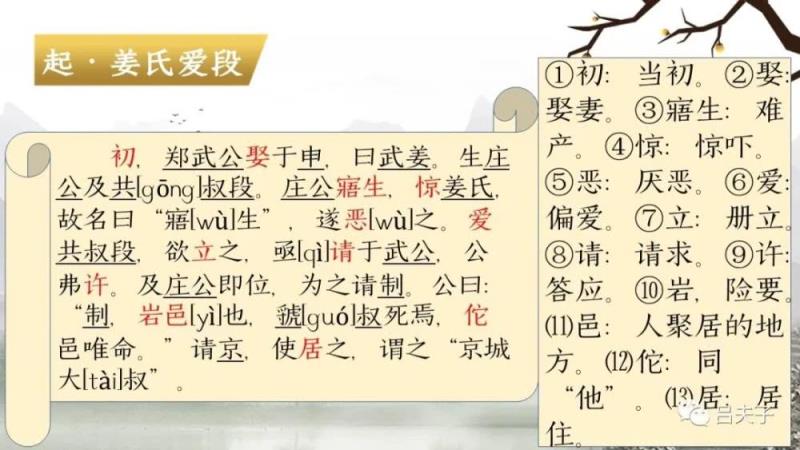 起·姜氏爱段
初，郑武公娶于申，曰武姜。生庄
公及共[gōng]叔段。庄公寤生，惊姜氏，
故名曰“寤[wù]生”，遂恶[wù]之。爱
共叔段，欲立之，亟[qì]请于武公，公
弗许。及庄公即位，为之请制。公曰：
“制，岩邑[yì]也，虢[guó]叔死焉，佗
邑唯命。”请京，使居之，谓之“京城
大[tài]叔”。
①初：当初。②娶：
娶妻。③寤生：难
产。④惊：惊吓。
⑤恶：厌恶。⑥爱：
偏爱。⑦立：册立。
⑧请：请求。⑨许：
答应。⑩岩，险要。
⑾邑：人聚居的地
方。⑿佗：同
“他”。⒀居：居
住。
吕夫子